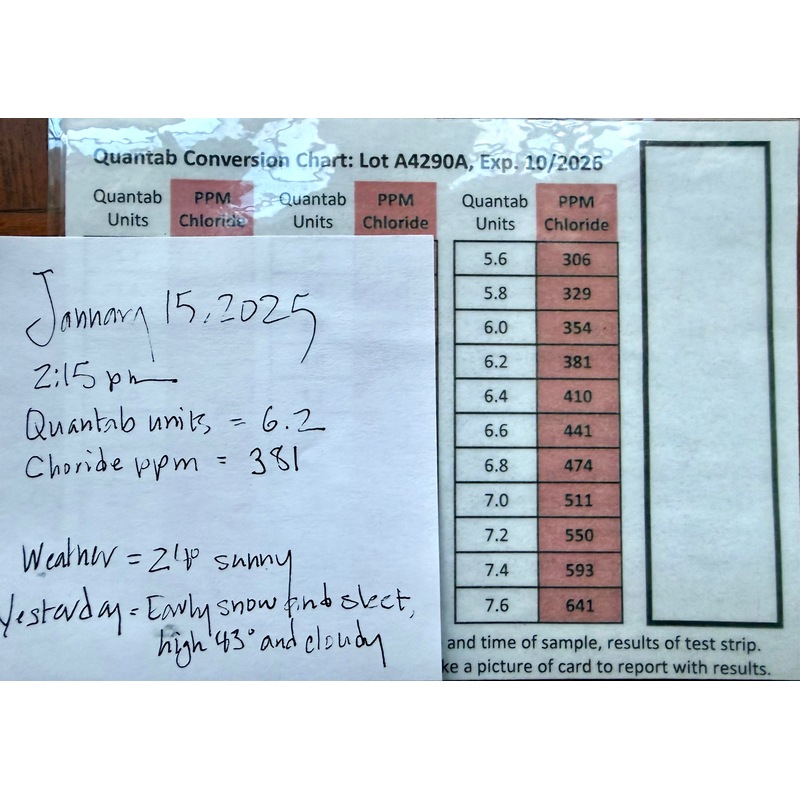 Quantab Conversion Chart: Lot A4290A, Exp. 10/2026
Quantab Units PPM Chloride Quantab Units PPM Chloride Quantab Units PPM Chloride
5.6 306
5.8 329
6.0 354
6.2 381
6.4 410
6.6 441
6.8 474
7.0 511
7.2 550
7.4 593
7.6 641
and time of sample, results of test strip.
ke a picture of card to report with results.
January 15, 2025
2:15 pm
Quantab units = 6.2
Choride ppm = 381
Weather = 24° sunny
Yesterday = Early snow and sleet,
high 43° and cloudy